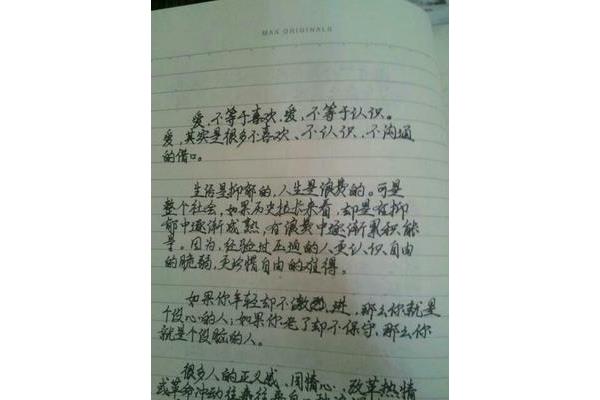 MAX ORIGINALS
爱,不等于喜欢,爱,不等于认识。
爱,其实是很多不喜欢、不认识,不沟通
的借口。
生活是抑郁的,人生是浪费的。可是
整个社会,如果历史拉长来看,却是在抑
郁中逐渐成熟,在浪费中逐渐累积能
量。因为,经验过压迫的人更认识自由
的脆弱,更珍惜自由的难得。
如果你年轻却不激进,那么你就是
个没心的人;如果你老了却不保守,那么你
就是个没脑的人。
很多人的正义感、同情心、改革热情
或革命冲动往来往